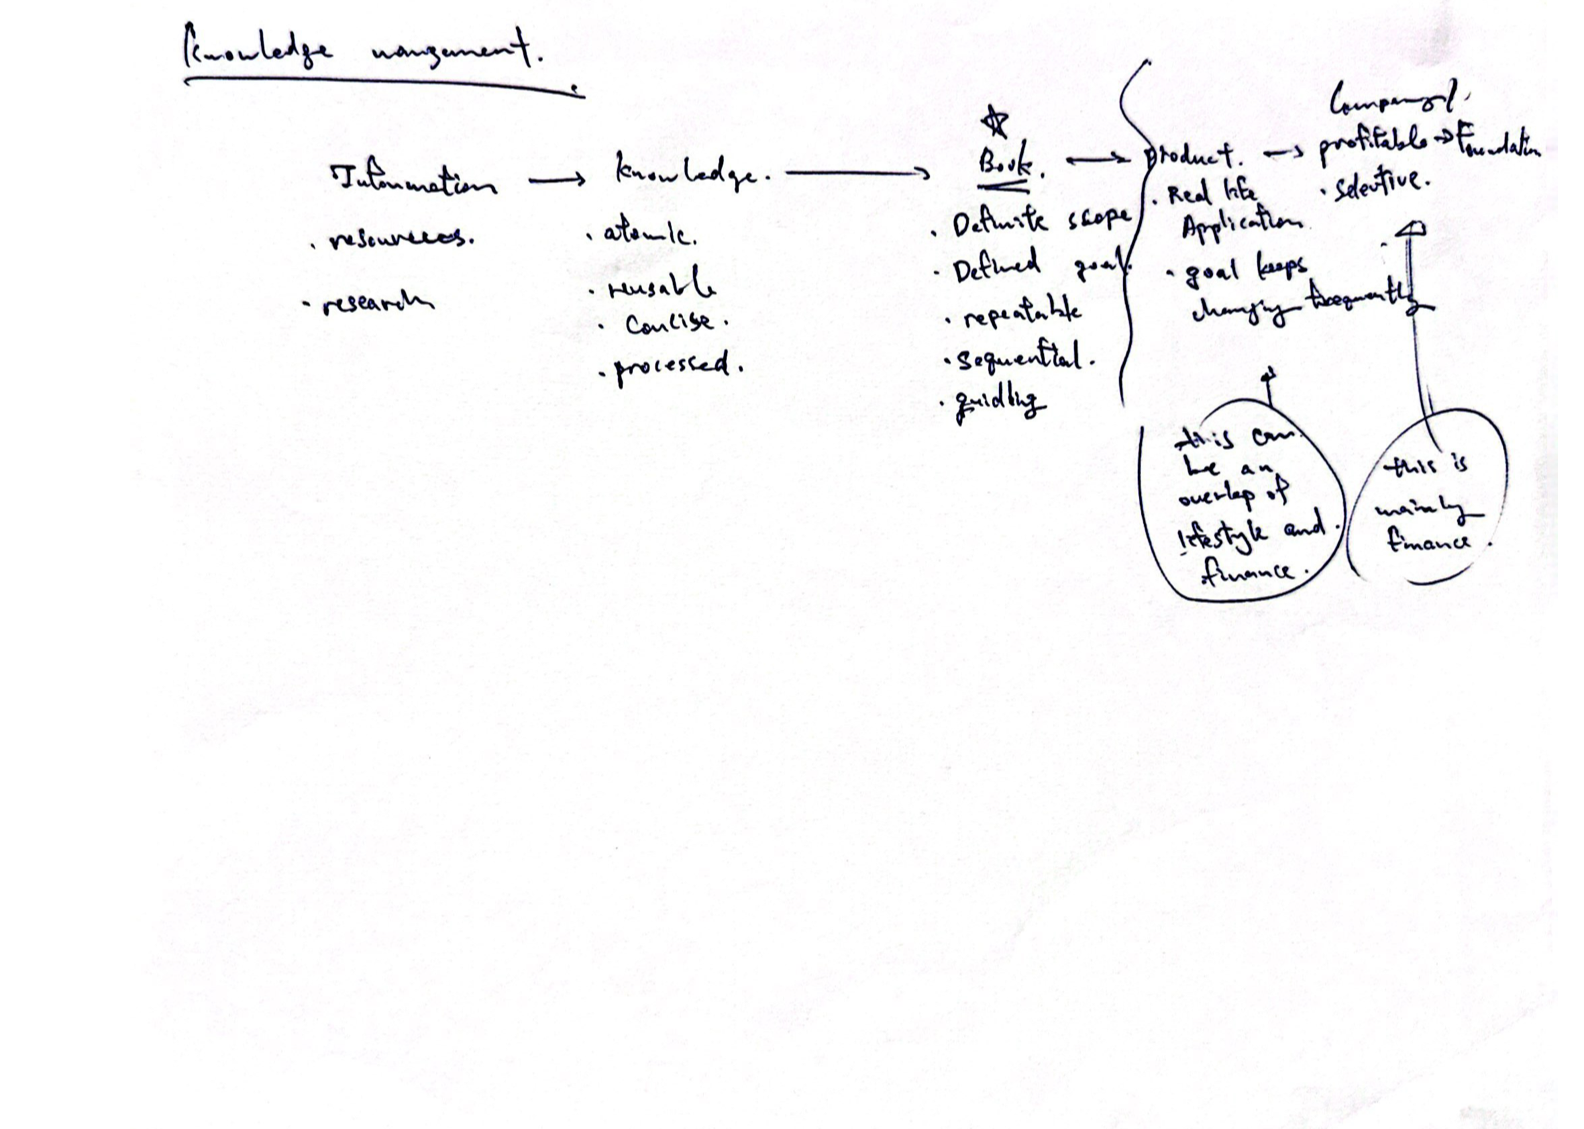 Knowledge mangement.
Information → knowledge. → Book. → product. → profitable → Foundation
Company /
. resources.
. research
. atomic.
. reusable
. Concise.
. processed.
. Definite scope
. Defined goal.
. repeatable
. sequential.
. guiding
. Real life
Application
. goal keeps
changing frequently
. selective.
this can
be an
overlap of
lifestyle and
finance.
this is
mainly
finance.